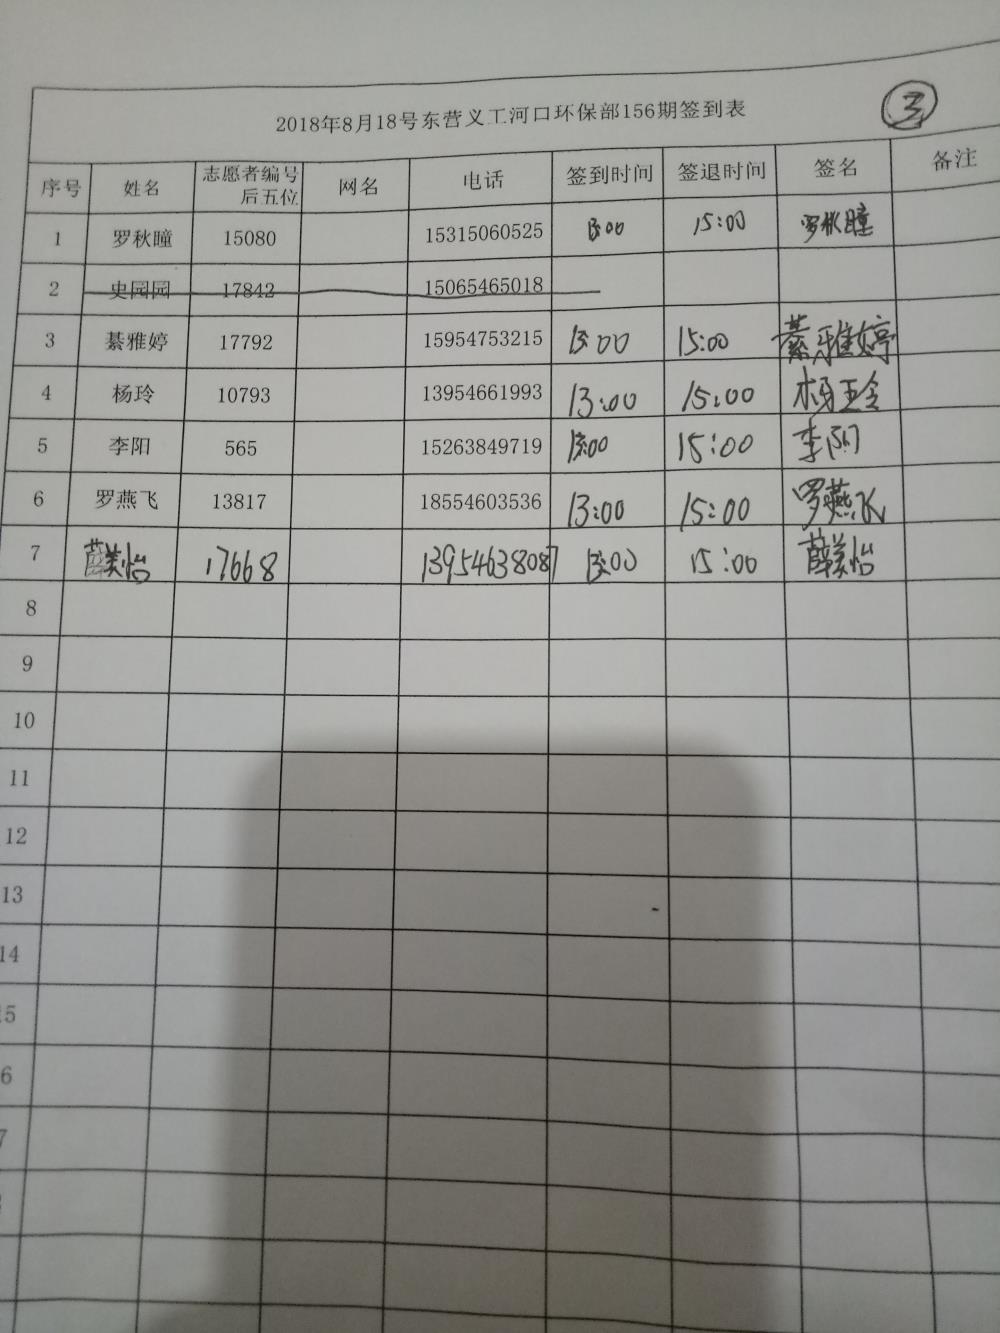 2018年8月18号东营义工河口环保部156期签到表 3
序号 姓名 志愿者编号后五位 网名 电话 签到时间 签退时间 签名 备注
1 罗秋瞳 15080 15315060525 13:00 15:00 罗秋瞳
2 史园园 17842 15065465018
3 綦雅婷 17792 15954753215 13:00 15:00 綦雅婷
4 杨玲 10793 13954661993 13:00 15:00 杨玲
5 李阳 565 15263849719 13:00 15:00 李阳
6 罗燕飞 13817 18554603536 13:00 15:00 罗燕飞
7 薛美怡 17668 13954638087 13:00 15:00 薛美怡
8
9
10
11
12
13
14
5
6
7